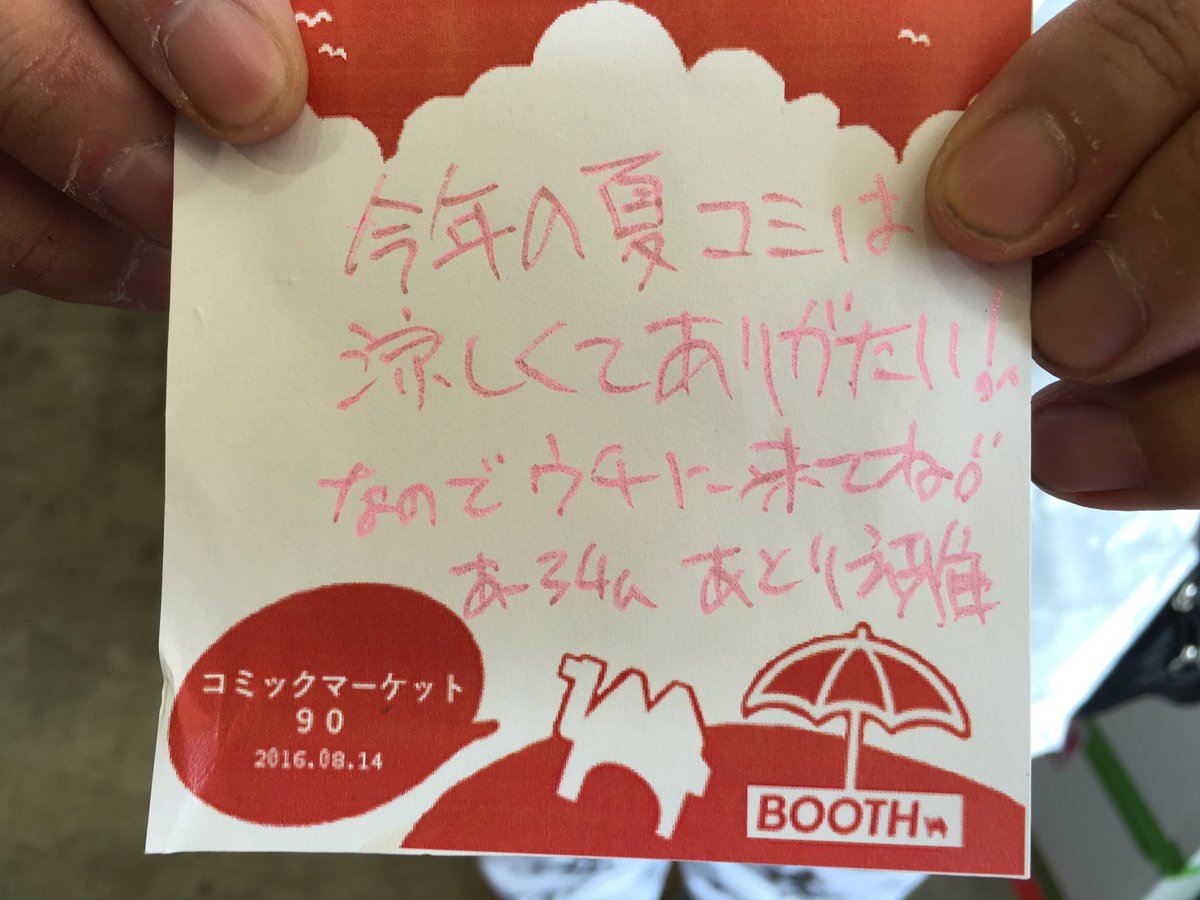 今年の夏コミは
涼しくてありがたい!
なのでウチに来てね
あ-34a あとり
コミックマーケット
90
2016.08.14
BOOTH